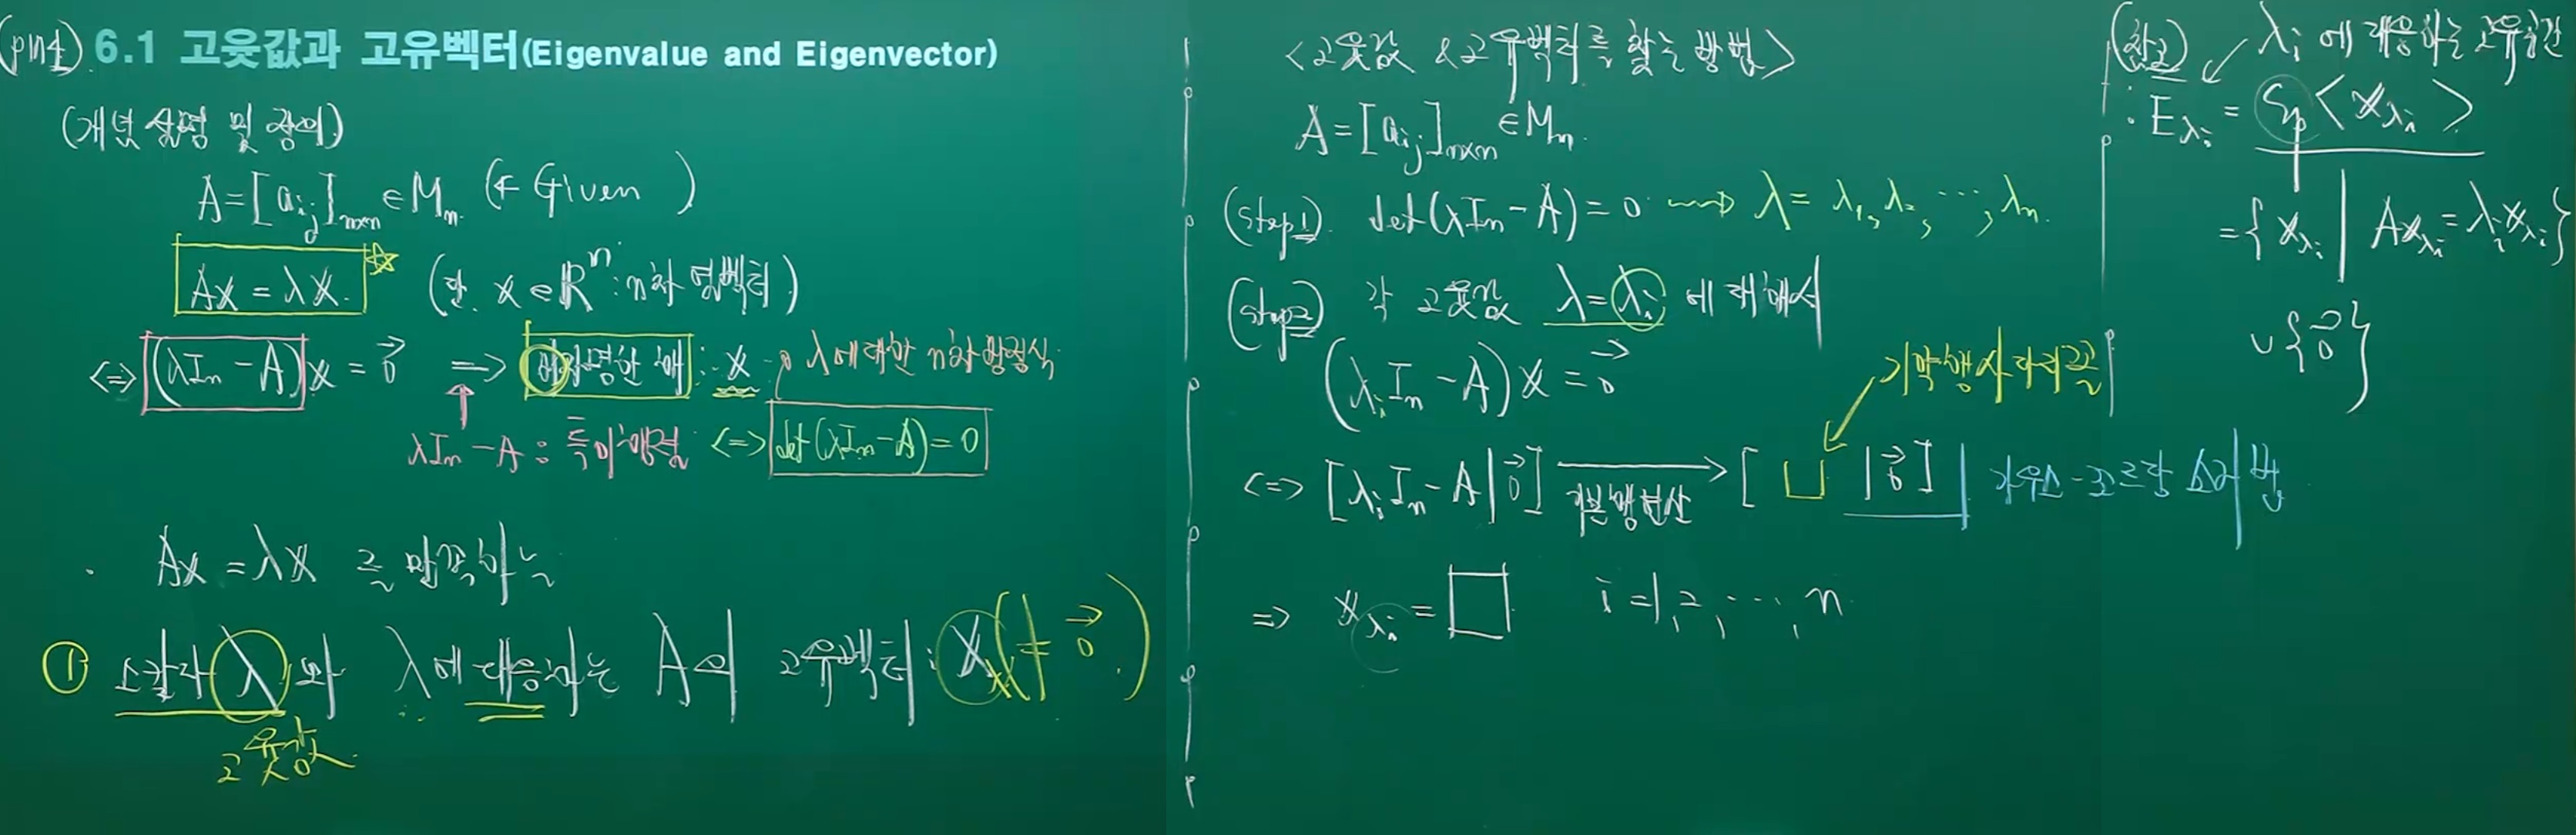 6.1 고윳값과 고유벡터(Eigenvalue and Eigenvector)
(개념 설명 및 정의)
A=[aij]n×n ∈Mn (← Given )
Ax = λx. ☆ (단, x∈Rⁿ : n차 열벡터)
<=> (λIn - A)x = 0⃗ => 비자명한 해 : x λ에 대한 n차 방정식
↑
λIn - A : 특이행렬 <=> det(λIn-A)=0
· Ax = λx 를 만족하는
① 스칼라 λ와 λ에 대응하는 A의 고유벡터 : x(≠ 0⃗ )
고윳값
<고윳값 & 고유벡터를 찾는 방법>
A=[aij]n×n ∈Mn.
(step1) det(λIn-A)=0 ⟿ λ= λ1, λ2, ⋯, λn.
(step2) 각 고윳값 λ=λi 에 대해서
(λiIn-A)x = 0⃗
기약행사다리꼴
<=> [λiIn-A|0⃗] → [ |0⃗] 가우스-조르단 소거법
기본행연산
=> xλi = □ i=1, 2, ⋯, n
(참고) λi에 대응하는 고유공간
· Eλi = Sp<xλi>
={xλi | Axλi=λixλi}
∪{0⃗}